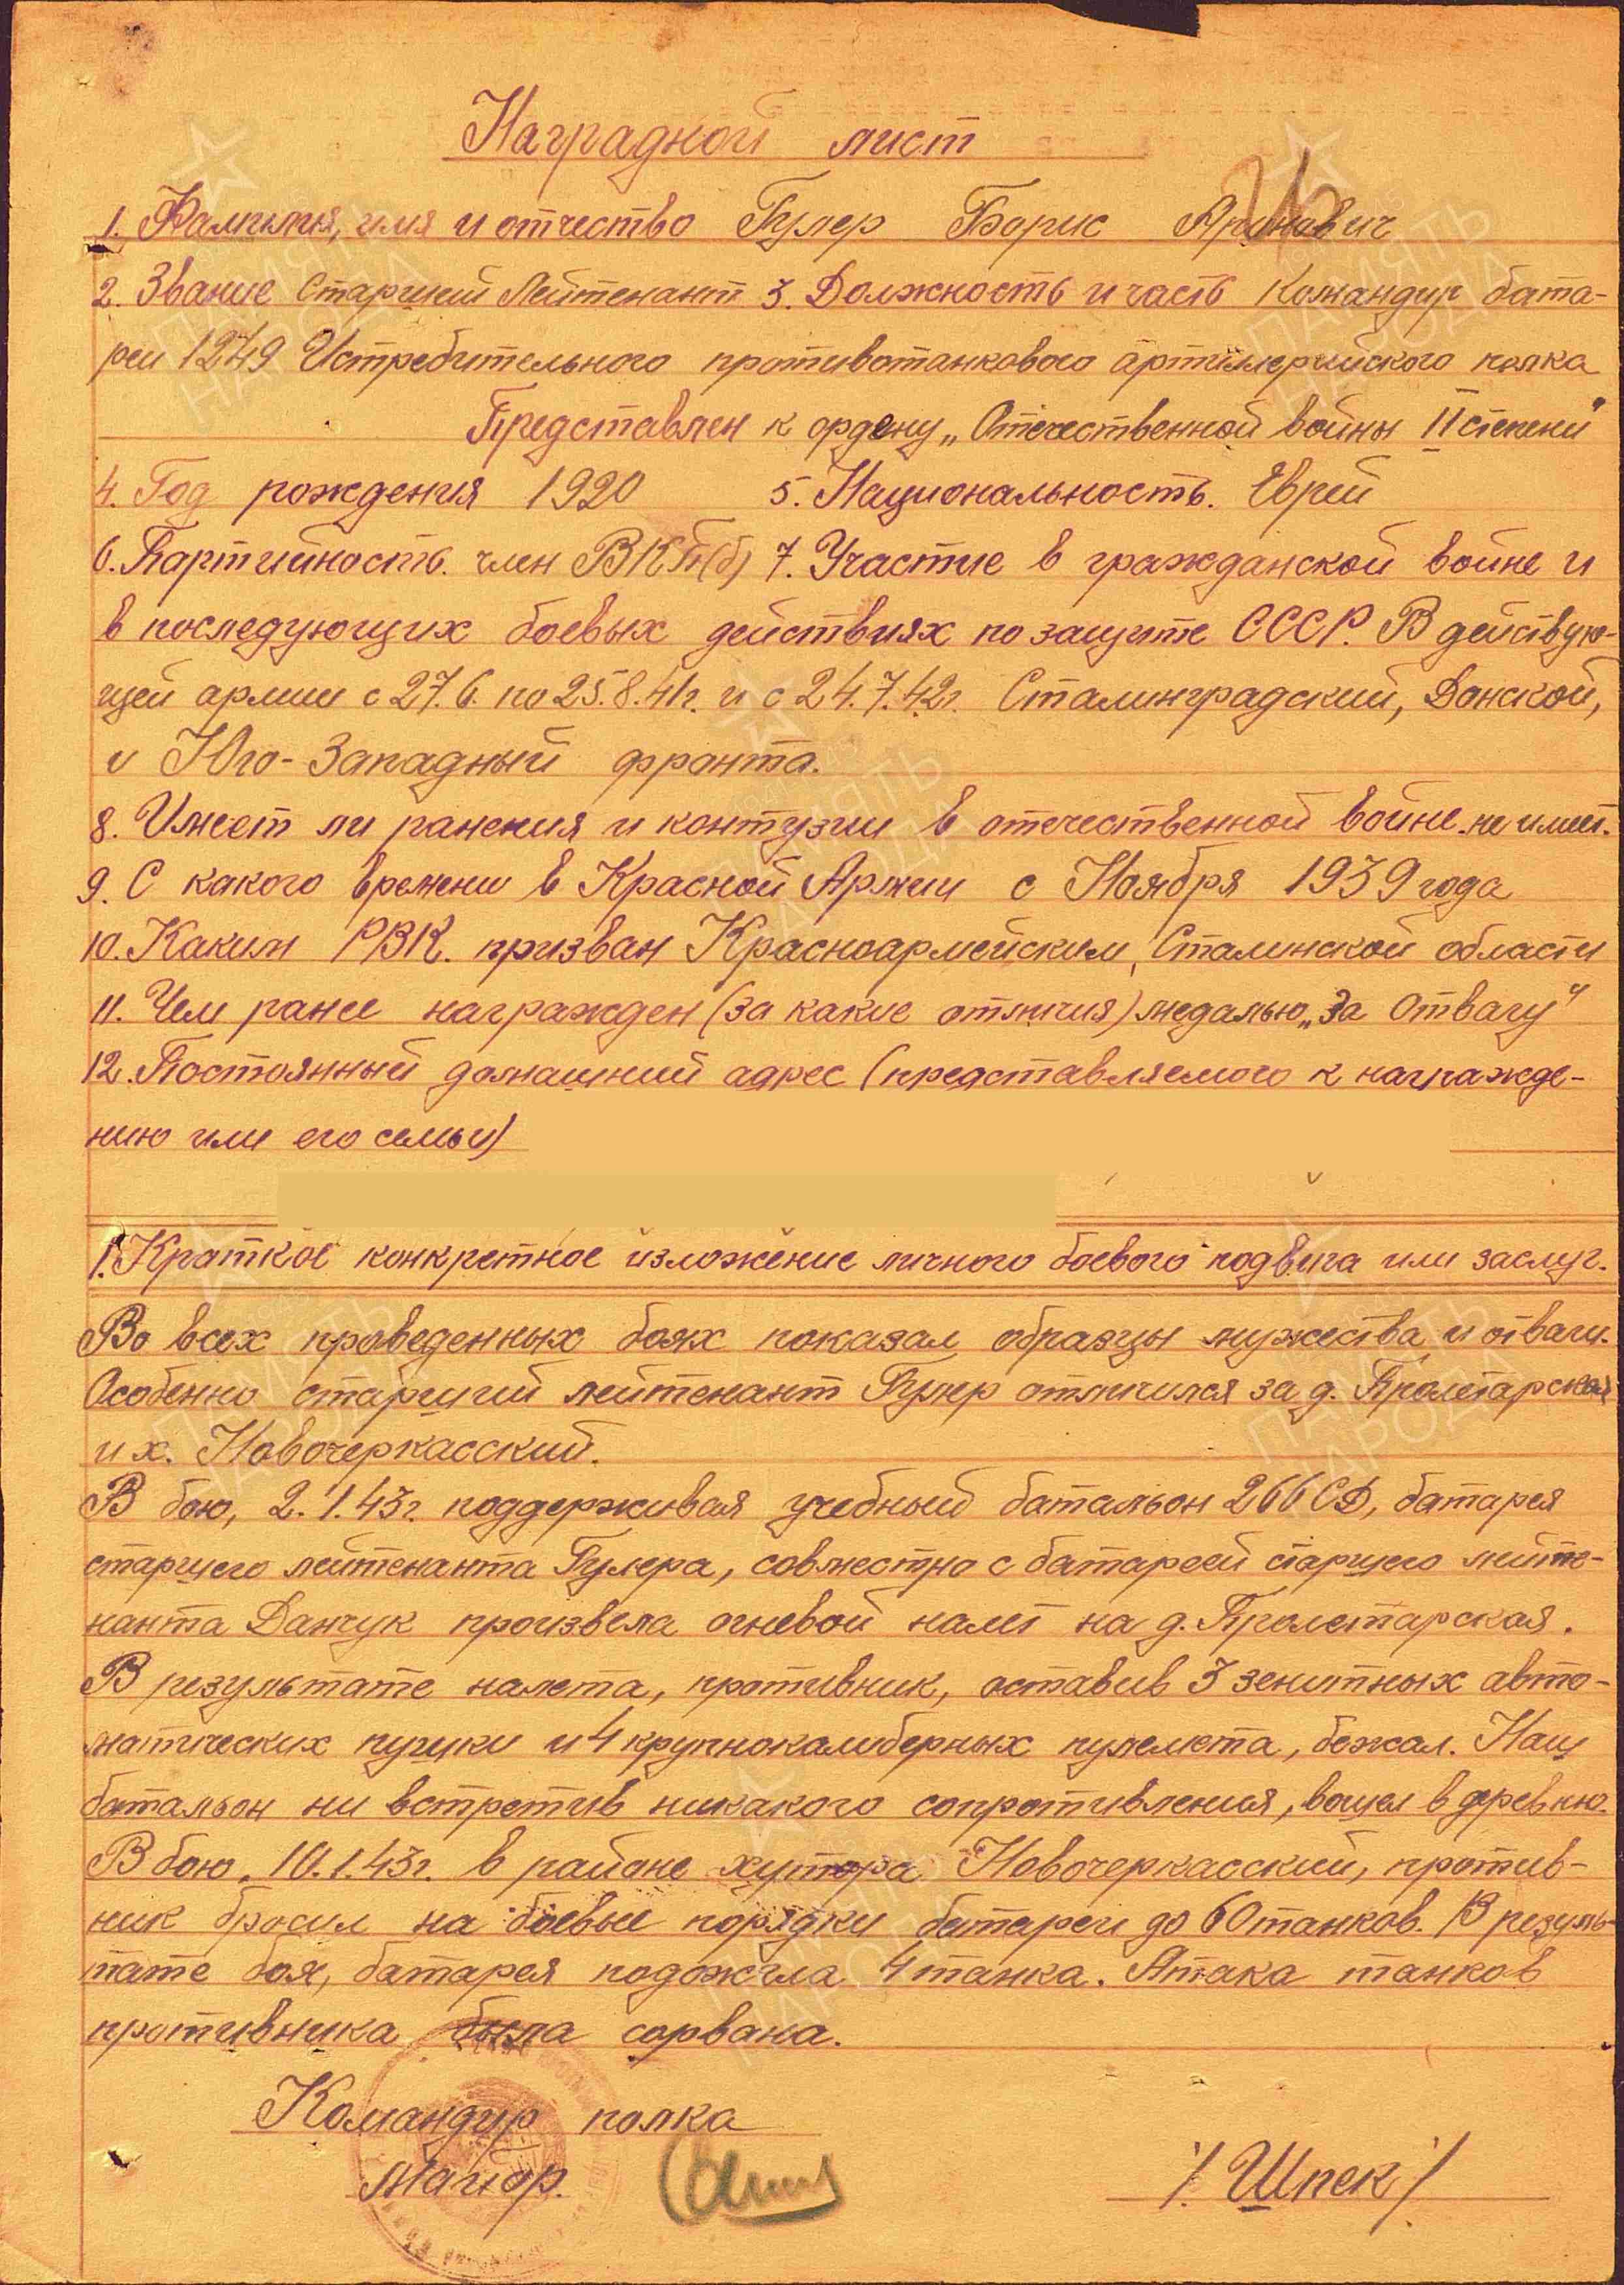 Наградной лист
1. Фамилия, имя и отчество Гулер Борис Аронович
2. Звание Старший Лейтенант 3. Должность и часть Командир бата-
реи 1249 Истребительного противотанкового артиллерийского полка
Представлен к ордену „Отечественной войны II степени"
4. Год рождения 1920 5. Национальность. Еврей
6. Партийность. член ВКП(б) 7. Участие в гражданской войне и
в последующих боевых действиях по защите СССР. В действую-
щей армии с 27.6. по 25.8.41г. и с 24.7.42г. Сталинградский, Донской,
и Юго-Западный фронта.
8. Имеет ли ранения и контузии в отечественной войне. не имеет.
9. С какого времени в Красной Армии с Ноября 1939 года
10. Каким РВК. призван Красноармейским, Сталинской области
11. Чем ранее награжден (за какие отличия) медалью „За Отвагу"
12. Постоянный домашний адрес (представляемого к награжде-
нию или его семьи)
1. Краткое конкретное изложение личного боевого подвига или заслуг.
Во всех проведенных боях показал образцы мужества и отваги.
Особенно старший лейтенант Гулер отличился за д. Пролетарская
и х. Новочеркасский.
В бою, 2.1.43г. поддерживая учебный батальон 266 СД, батарея
старшего лейтенанта Гулера, совместно с батареей старшего лейте-
нанта Данчук произвела огневой налет на д. Пролетарская.
В результате налета, противник, оставив 3 зенитных авто-
матических пушки и 4 крупнокалиберных пулемета, бежал. Наш
батальон ни встретив никакого сопротивления, вошел в деревню.
В бою, 10.1.43г. в районе хутора Новочеркасский, против-
ник бросил на боевые порядки батареи до 60 танков. В резуль-
тате боя, батарея подожгла 4 танка. Атака танков
противника была сорвана.
Командир полка
Майор. /Шпек/
ПАМЯТЬ НАРОДА